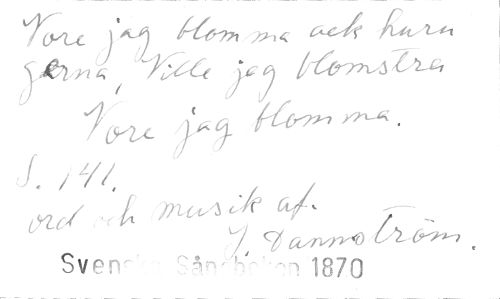 Vore jag blomma ack huru
gerna, Ville jag blomstra
Vore jag blomma.
S. 141.
ord och musik af.
J. Dannström.
Svenska Sångboken 1870